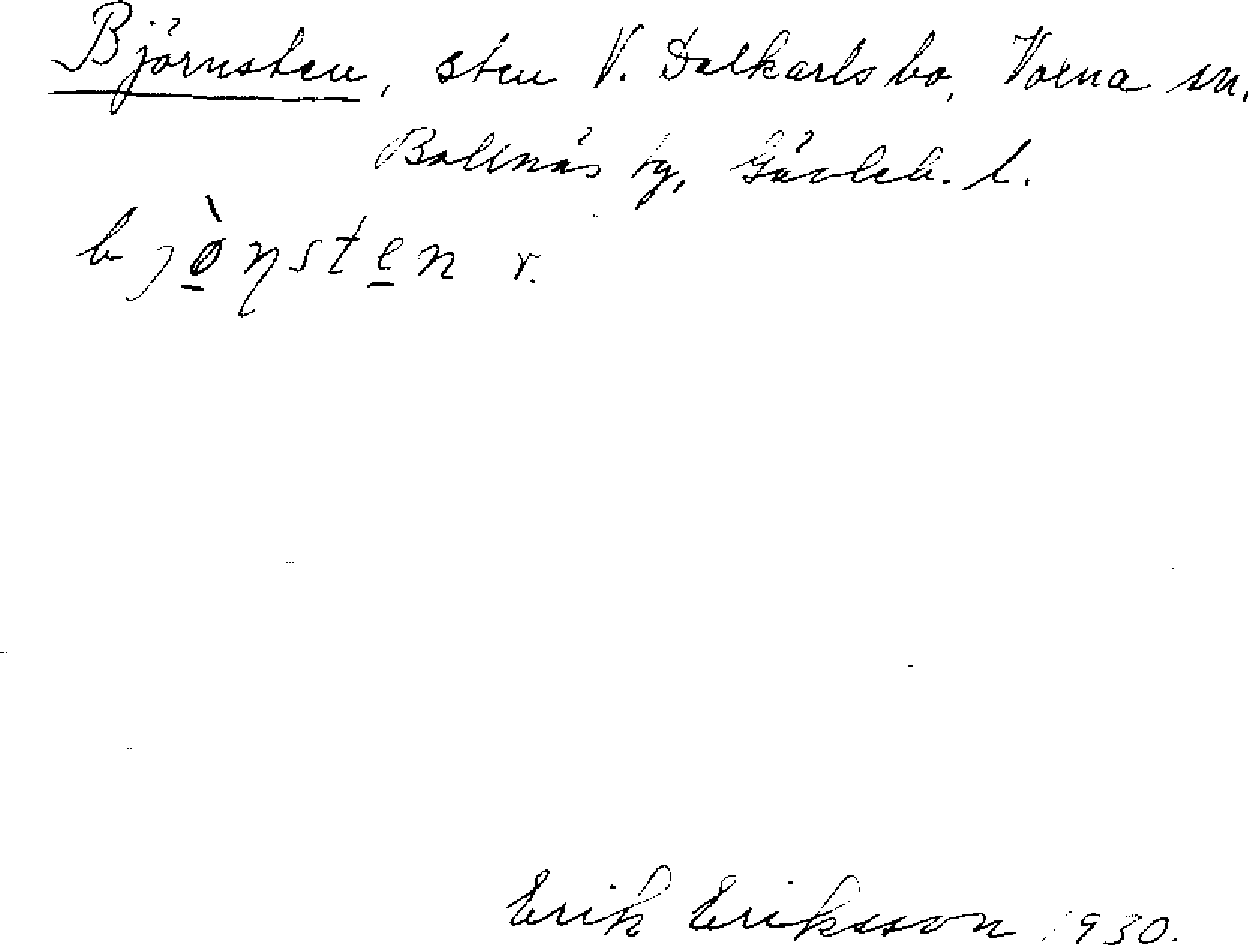 Björnsten, sten V. Dalkarlsbo, Voxna sn.
Bollnäs tg, Gävleb. l.
bjö̀ṇsten r.
Erik Eriksson 1930.